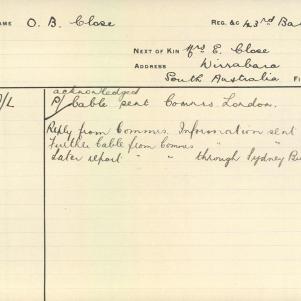 NAME O. B. Close REG. &C 43rd Ba
NEXT OF KIN Mrs E. Close
ADDRESS Wirrabara
South Australia F
/L acknowledged
P/ Cable sent Comrs London.
Reply from Commrs. Information sent
further cable from Comrs " "
Later report " " through Sydney Bu